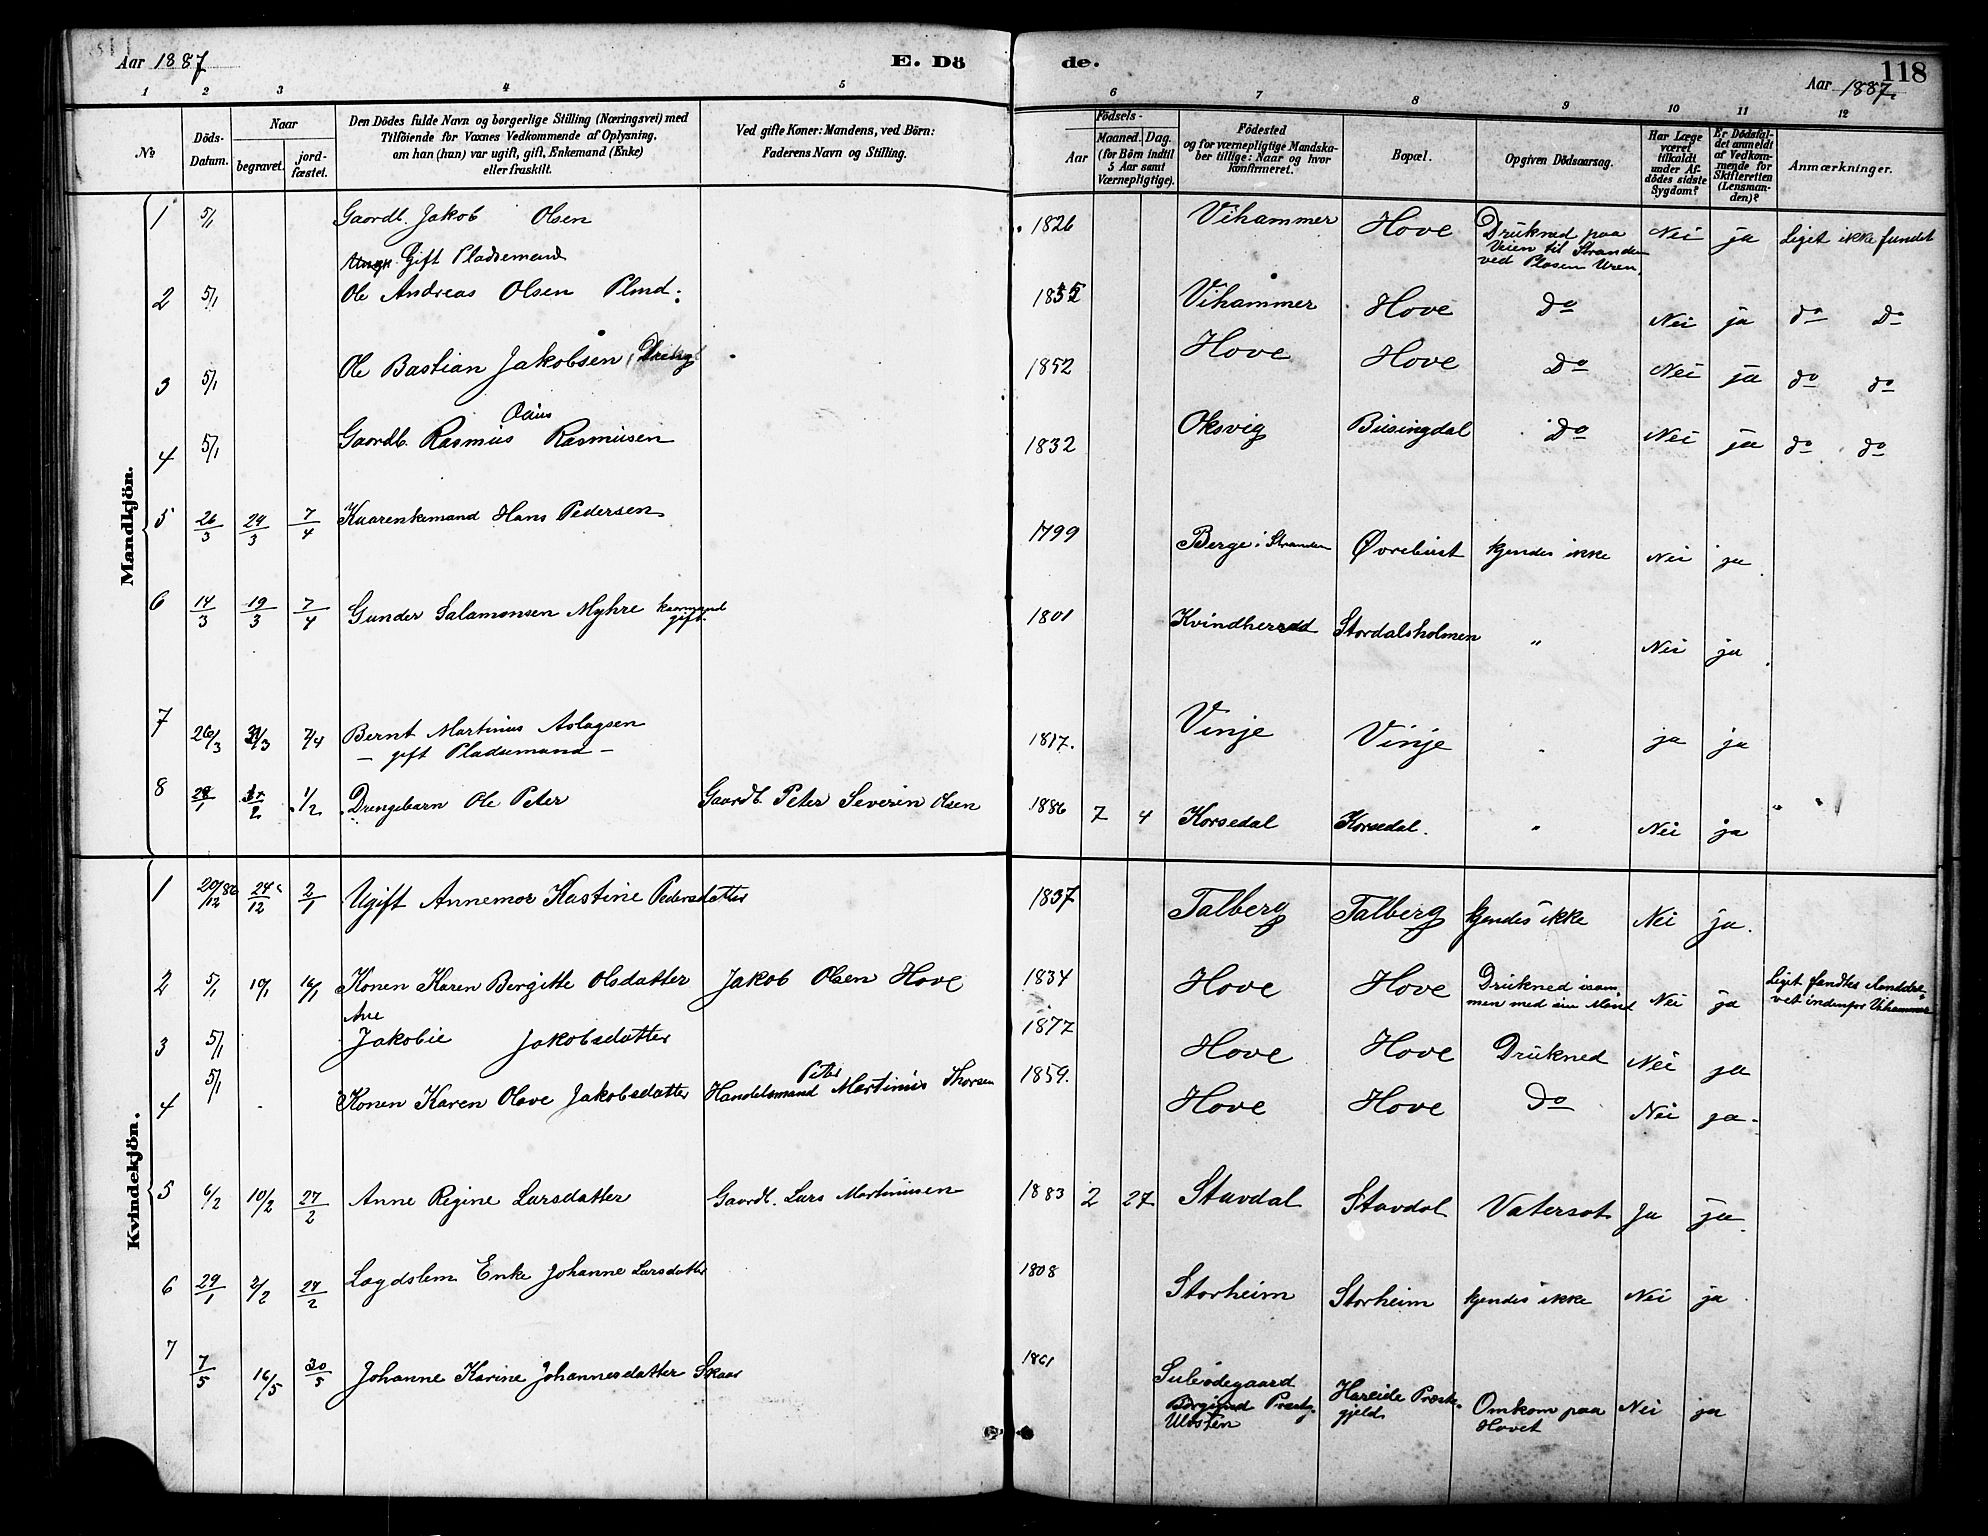 Aar 1887
E. Dö
de.
118
Aar 1887.
1 2 3 4 5 6 7 8 9 10 11 12
No
Döds-Datum.
Naar
begravet.
jord-fæstet.
Den Dödes fulde Navn og borgerlige Stilling (Næringsvei) med
Tilföiende for Voxnes Vedkommende af Oplysning,
om han (hun) var ugift, gift, Enkemand (Enke)
eller fraskilt.
Ved gifte Koner: Mandens, ved Börn:
Faderens Navn og Stilling.
Födsels-
Aar
Maaned. Dag.
(for Börn indtil
5 Aar samt
Værnepligtige).
Födested
og for værnepligtige Mandska-
ber tillige: Naar og hvor
konfirmeret.
Bopæl.
Opgiven Dödsaarsag.
Har Læge
været
tilkaldt
under Af-
dödes sidste
Sygdom?
Er Dödsfal-
det anmeldt
af Vedkom-
mende for
Skifteretten
(Lensman-
den)?
Anmærkninger.
Mandkjön.
1 5/1 Gaardb. Jakob Olsen 1826 Vihammer Hove Drukned paa Veien til Stranden ved Plasen Uren. Nei ja Liget ikke fundet
Gift Pladsemand
2 5/1 Ole Andreas Olsen Plmd. Vihammer Hove Do Nei ja do Do
3 5/1 Ole Bastian Jakobsen, 1852 Hove Hove Do Nei ja do do
4 5/1 Gaardb. Rasmus Rasmusen 1832 Oksvig Busingdal Do Nei ja do do
5 26/3 29/3 7/4 Kaarenkemand Hans Pedersen 1799 Berge i Stranden Øvrebust kjendes ikke Nei ja
6 14/3 19/3 7/4 Gunder Salamonsen Myhre kaarmand gift. 1801 Kvindherred Stordalsholmen " Nei ja
7 26/3 31/3 7/4 Bernt Martinus Aslagsen 1817. Vinje Vinje " ja ja
— gift Pladsemand —
8 28/1 1/2 Drengebarn Ole Peter Gaardb. Peter Severin Olsen 1886 7 4 Korsedal Korsedal. " Nei ja " "
Kvindekjön.
1 20/12 86 24/12 2/1 Ugift Annemor Kastine Pedersdatter 1837 Talberg Talberg kjendes ikke Nei ja.
2 5/1 10/1 16/1 Konen Karen Bergitte Olsdatter Jakob Olsen Hove 1834 Hove Hove Drukned isam men med sin Mand Nei ja Liget fandtes vet indenfor Vihammer
3 5/1 Ane Jakobie Jakobsdatter 1877 Hove Hove Drukned Nei ja
4 5/1 Konen Karen Olave Jakobsdatter Handelsmand Peter Martinius Thorsen 1859. Hove Hove Do Nei ja.
5 6/2 10/2 27/2 Anne Regine Larsdatter Gaardb. Lars Martinusen 1883 2 27 Stavdal Stavdal Vatersot Ja ja
6 29/1 2/2 27/2 Lægdslem Enke Johanne Larsdatter 1808 Storheim Storheim kjendes ikke Nei ja
7 7/5 16/5 30/5 Johanne Karine Johannesdatter Skaar 1861 Sulødegaard Borgund Præstg. Ulvsten Hareide Præste- gjeld Omkom paa Havet Nei ja